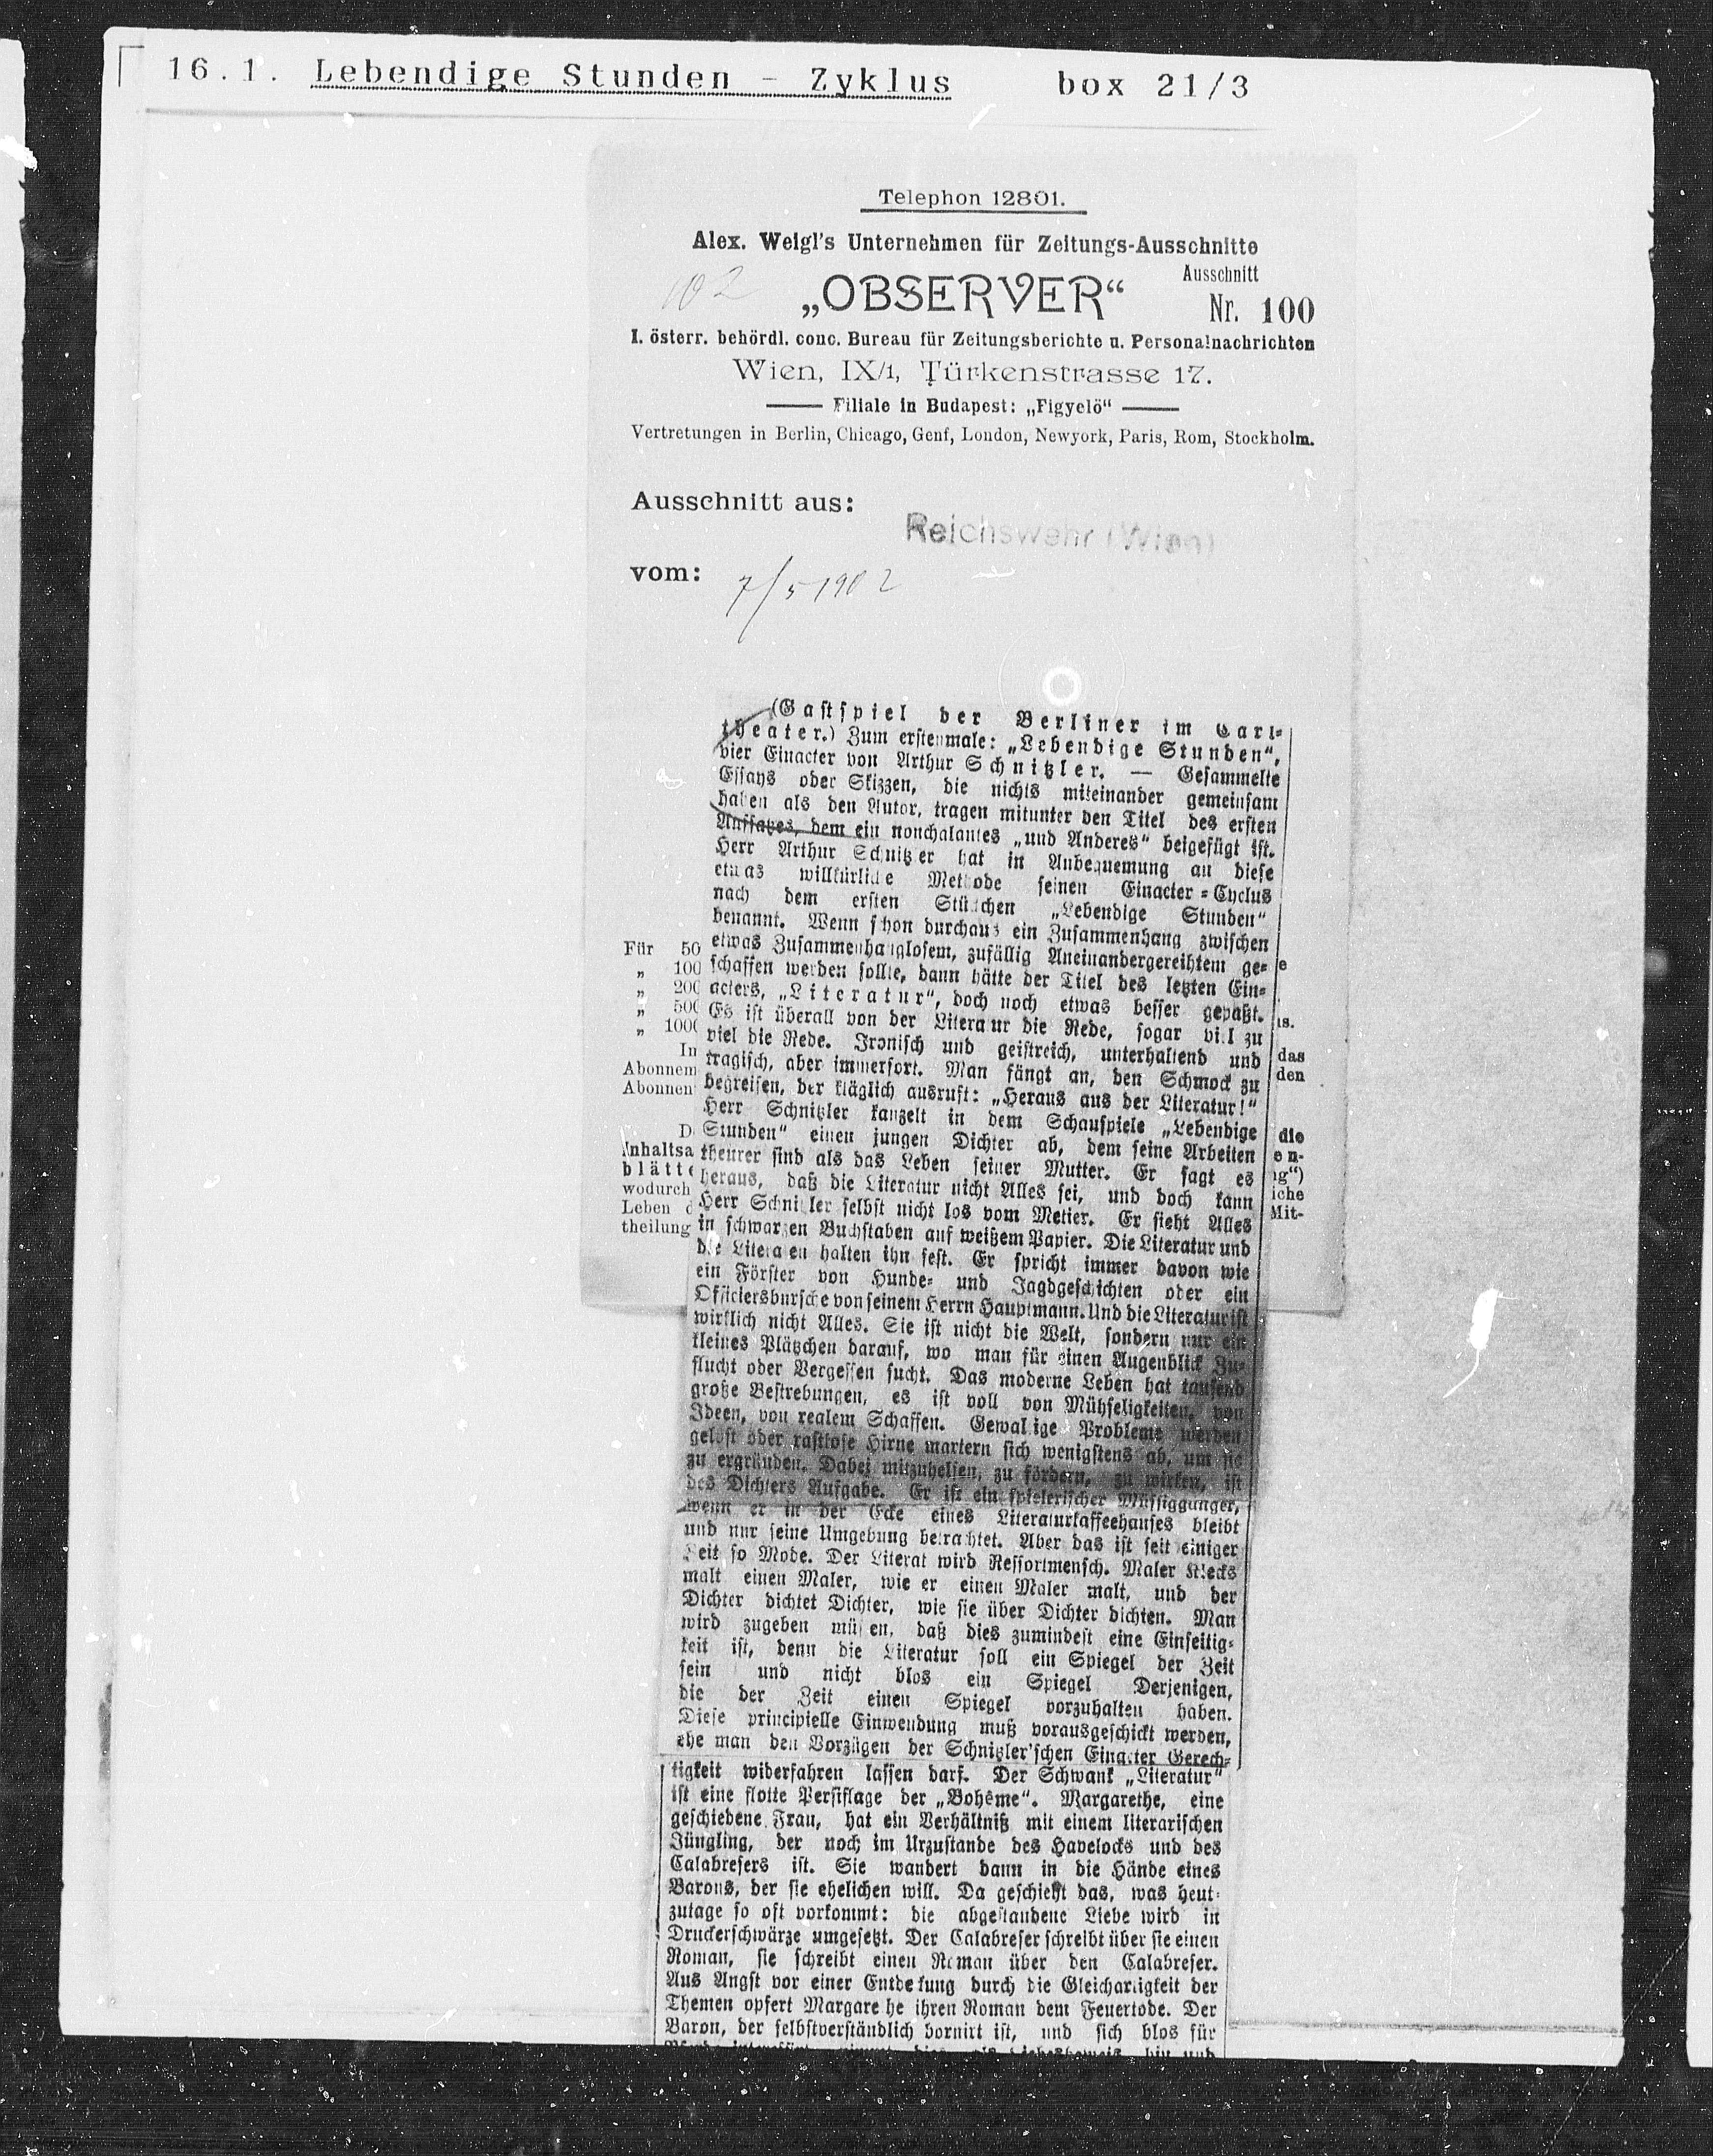 16.1. Lebendige Stunden - Zyklus box 21/3
Telephon 12801.
Alex. Weigl's Unternehmen für Zeitungs-Ausschnitte
102
„OBSERVER“
Ausschnitt
Nr. 100
I. österr. behördl. conc. Bureau für Zeitungsberichte u. Personalnachrichten
Wien, IX/1, Türkenstrasse 17.
Filiale in Budapest: „Figyelö“
Vertretungen in Berlin, Chicago, Genf, London, Newyork, Paris, Rom, Stockholm.
Ausschnitt aus:
Reichswehr (Wien)
vom: 7/5 1902
(Gastspiel der Berliner im Carl-
theater.) Zum erstenmale: „Lebendige Stunden“,
vier Einacter von Arthur Schnitzler. — Gesammelte
Essays oder Skizzen, die nichts miteinander gemeinsam
haben als den Autor, tragen mitunter den Titel des ersten
Aufsatzes, dem ein nonchalantes „und Anderes“ beigefügt ist.
Herr Arthur Schnitzler hat in Anbequemung an diese
etwas willkürliche Methode seinen Einacter-Cyclus
nach dem ersten Stückchen „Lebendige Stunden“
benannt. Wenn schon durchaus ein Zusammenhang zwischen
etwas Zusammenhanglosem, zufällig Aneinandergereihtem ge-
schaffen werden sollte, dann hätte der Titel des letzten Ein-
acters, „Literatur“, doch noch etwas besser gepaßt.
Es ist überall von der Literatur die Rede, sogar viel zu
viel die Rede. Ironisch und geistreich, unterhaltend und
tragisch, aber immerfort. Man fängt an, den Schmock zu
begreifen, der kläglich ausruft: „Heraus aus der Literatur!“
Herr Schnitzler kanzelt in dem Schauspiele „Lebendige
Stunden“ einen jungen Dichter ab, dem seine Arbeiten
theurer sind als das Leben seiner Mutter. Er sagt es
heraus, daß die Literatur nicht Alles sei, und doch kann
Herr Schnitzler selbst nicht los vom Metier. Er sieht Alles
in schwarzen Buchstaben auf weißem Papier. Die Literatur und
die Literaten halten ihn fest. Er spricht immer davon wie
ein Förster von Hunde- und Jagdgeschichten oder ein
Officiersbursche von seinem Herrn Hauptmann. Und die Literatur ist
wirklich nicht Alles. Sie ist nicht die Welt, sondern nur ein
kleines Plätzchen darauf, wo man für einen Augenblick Zu-
flucht oder Vergessen sucht. Das moderne Leben hat tausend
große Bestrebungen, es ist voll von Mühseligkeiten, von
Ideen, von realem Schaffen. Gewaltige Probleme werden
gelöst oder rastlose Hirne martern sich wenigstens ab, um sie
zu ergründen. Dabei mitzuhelfen, zu fördern, zu wirken, ist
des Dichters Aufgabe. Er ist ein spielerischer Müssiggänger,
wenn er in der Ecke eines Literaturkaffeehauses bleibt
und nur seine Umgebung betrachtet. Aber das ist seit einiger
Zeit so Mode. Der Literat wird Ressortmensch. Maler Klecks
malt einen Maler, wie er einen Maler malt, und der
Dichter dichtet Dichter, wie sie über Dichter dichten. Man
wird zugeben müssen, daß dies zumindest eine Einseitig-
keit ist, denn die Literatur soll ein Spiegel der Zeit
sein und nicht blos ein Spiegel Derjenigen,
die der Zeit einen Spiegel vorzuhalten haben.
Diese principielle Einwendung muß vorausgeschickt werden,
ehe man den Vorzügen der Schnitzler'schen Einacter Gerech-
tigkeit widerfahren lassen darf. Der Schwank „Literatur“
ist eine flotte Persiflage der „Bohême“. Margarethe, eine
geschiedene Frau, hat ein Verhältniß mit einem literarischen
Jüngling, der noch im Urzustande des Havelocks und des
Calabresers ist. Sie wandert dann in die Hände eines
Barons, der sie ehelichen will. Da geschieht das, was heut-
zutage so oft vorkommt: die abgestandene Liebe wird in
Druckerschwärze umgesetzt. Der Calabreser schreibt über sie einen
Roman, sie schreibt einen Roman über den Calabreser.
Aus Angst vor einer Entdeckung durch die Gleichartigkeit der
Themen opfert Margarethe ihren Roman dem Feuertode. Der
Baron, der selbstverständlich bornirt ist, und sich blos für
Für 50
„ 100
„ 200
„ 500
„ 1000
In
Abonnem
Abonnen
D
Inhaltsa
blätte
wodurch
Leben
theilung
e
us.
das
den
die
en-
ig“)
iche
Mit-